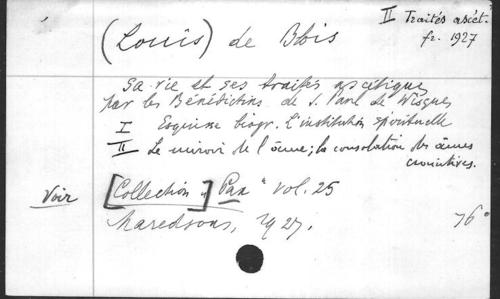 II Traités ascét.
fr. 1927
(Louis) de Blois
Sa vie et ses traités ascétiques
par les Bénédictins de S. Paul de Wisques
I Esquisse biogr. L'institution spirituelle
II Le miroir de l'âme; la consolation des âmes
craintives.
Voir [Collection "] Pax" vol. 25
Maredsous, 1927. in 16°